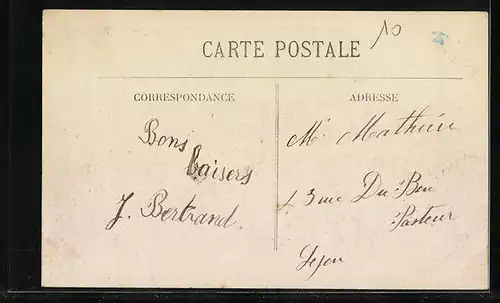 10
CARTE POSTALE
CORRESPONDANCE
Bons
baisers
J. Bertrand
ADRESSE
Mr Mathieu
3 rue Du Bon
Pasteur
Lyon